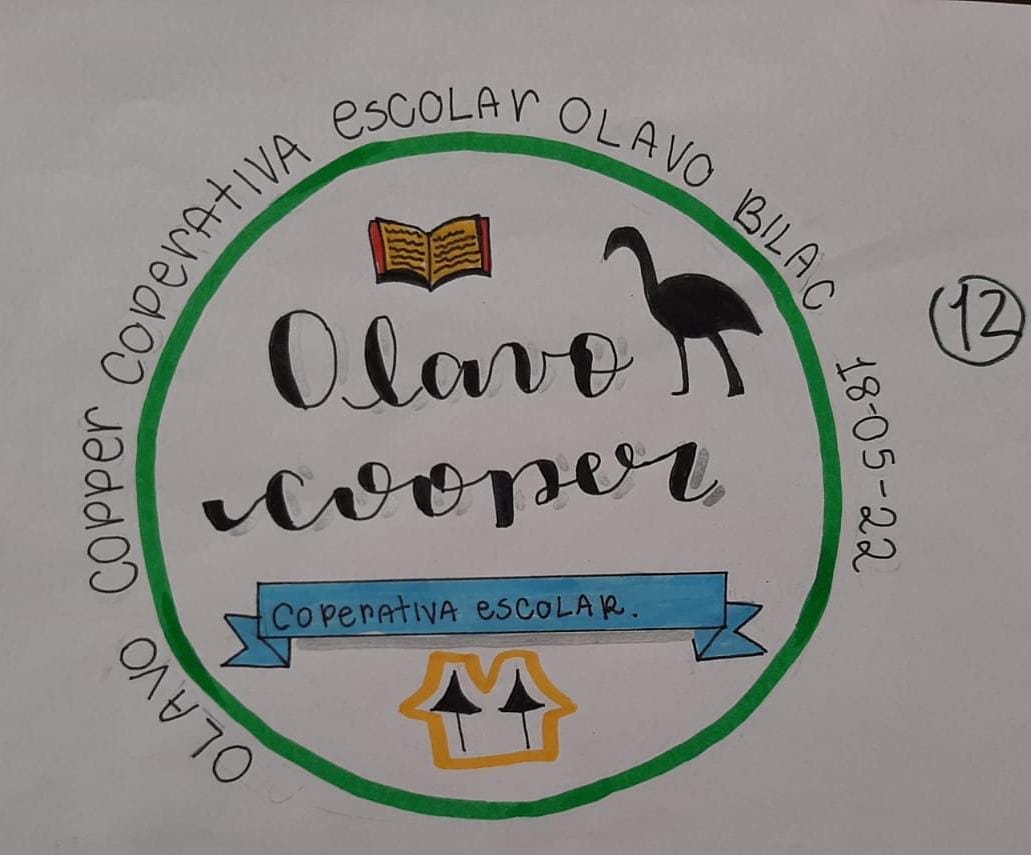 OLAVO COPPER COPERATIVA ESCOLAR OLAVO BILAC 18-05-22
Olavo
cooper
COPERATIVA ESCOLAR.
12